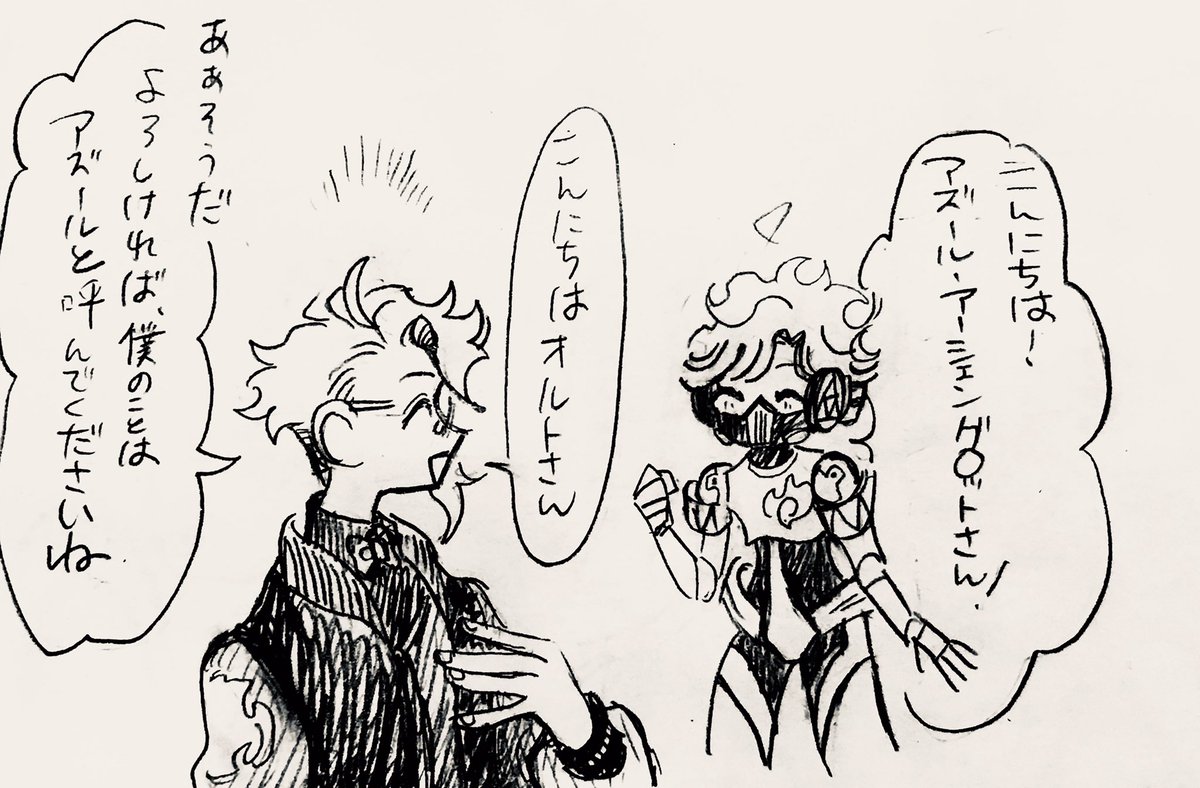 こんにちは!
アズール・アーシェングロットさん!
こんにちは オルトさん
あぁそうだ
よろしければ、僕のことは
アズールと呼んでくださいね